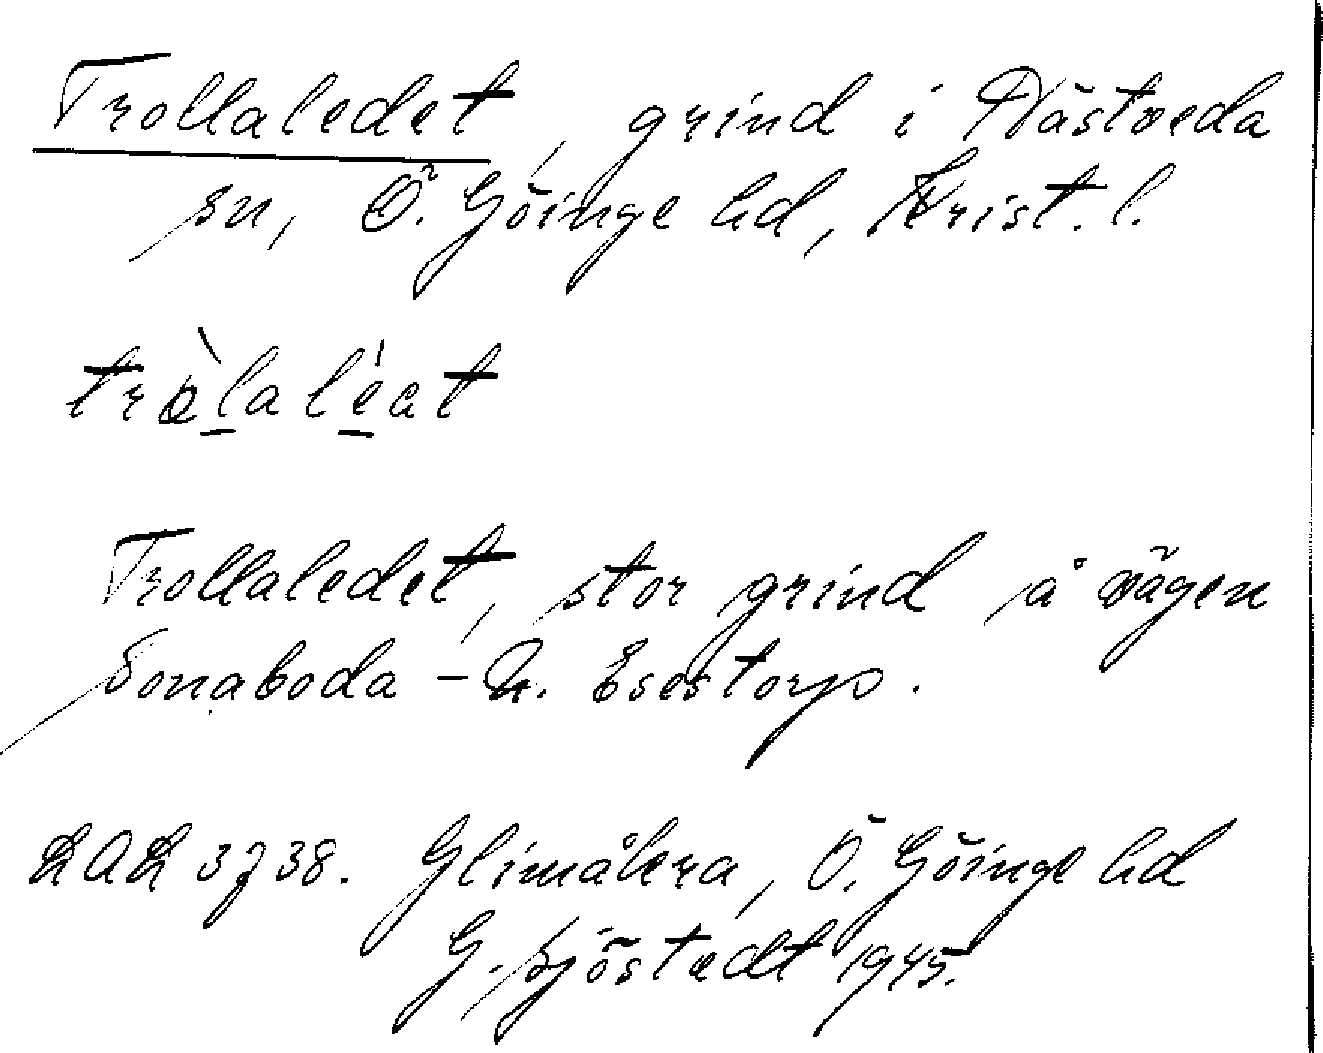 Trollaledet, grind i Västveda
sn, Ö. Göinge hd, Krist. l.
tròlaléat
Trollaledet, stor grind på vägen
Sonaboda – N. Esestorp.
LAL 3738. Glimåkra, Ö. Göinge hd
G. Sjöstedt 1945.